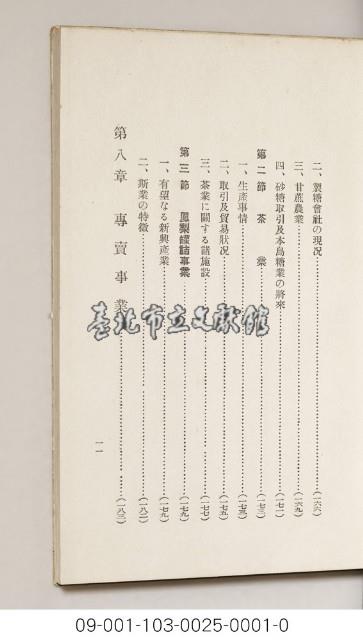 二、製糖會社の現況……(一六六)
三、甘蔗農業……(一六九)
四、砂糖取引及本島糖業の將來……(一七一)
第二節 茶業……(一七三)
一、生產事情……(一七三)
二、取引及貿易狀況……(一七五)
三、茶業に關する諸施設……(一七七)
第三節 鳳梨罐詰事業……(一七九)
一、有望なる新興產業……(一七九)
二、斯業の特徵……(一八二)
第八章 專賣事業……(一八三)
一一
臺北市立文獻館
09-001-103-0025-0001-0